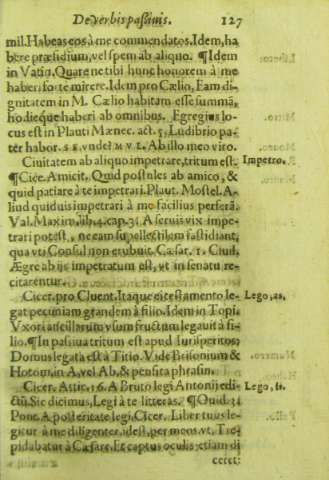 De verbis passiuis. 127
mil. Habeas eos à me commendatos. Idem, ha
bere præsidium, vel spem ab aliquo. ¶ Idem
in Vatin. Quare ne tibi hunc honorem à me
haberi forte mirere. Idem pro Cælio, Eam di-
gnitatem in M. Cælio habitam esse summã,
hodieque haberi ab omnibus. Egregius lo-
cus est in Plauti Mænec. act. 5. Ludibrio pa-
ter habor. vnde? MVL. Ab illo meo viro.
Ciuitatem ab aliquo impetrare, tritum est.
Impetro.
¶ Cice. Amicit. Quid postules ab amico, &
quid patiare à te impetrari. Plaut. Mostel. A-
liud quiduis impetrari à me facilius perferã.
Val. Maxim. lib. 4. cap. 3. A seruis vix impe-
trari potest, ne eam supellectilem fastidiant,
qua vti Consul non erubuit. Cæsar. 1. Ciuil.
Ægre ab ijs impetratum est, vt in senatu re-
citarentur.
Cicer. pro Cluent. Itaque ei testamento le-
Lego, as,
gat pecuniam grandem à filio. Idem in Topi.
Vxori ancillarum vsum fructum legauit à fi-
lio. ¶ In passiua tritum est apud Iurisperitos:
Domus legata est à Titio. Vide Brisonium &
Hotom, in A, vel Ab, & pensita phrasin.
Cicer. Attic. 16. A Bruto legi Antonij edi-
Lego, is.
ctũ. Sic dicimus, Legi à te litteras. ¶ Ouid. 3.
Pont. A posteritate legi. Cicer. Liber tuus le-
gitur à me diligenter. idest, per me. vt. Tre-
pidabatur à Cæsare. Et captus oculis: etiam di
ceret: